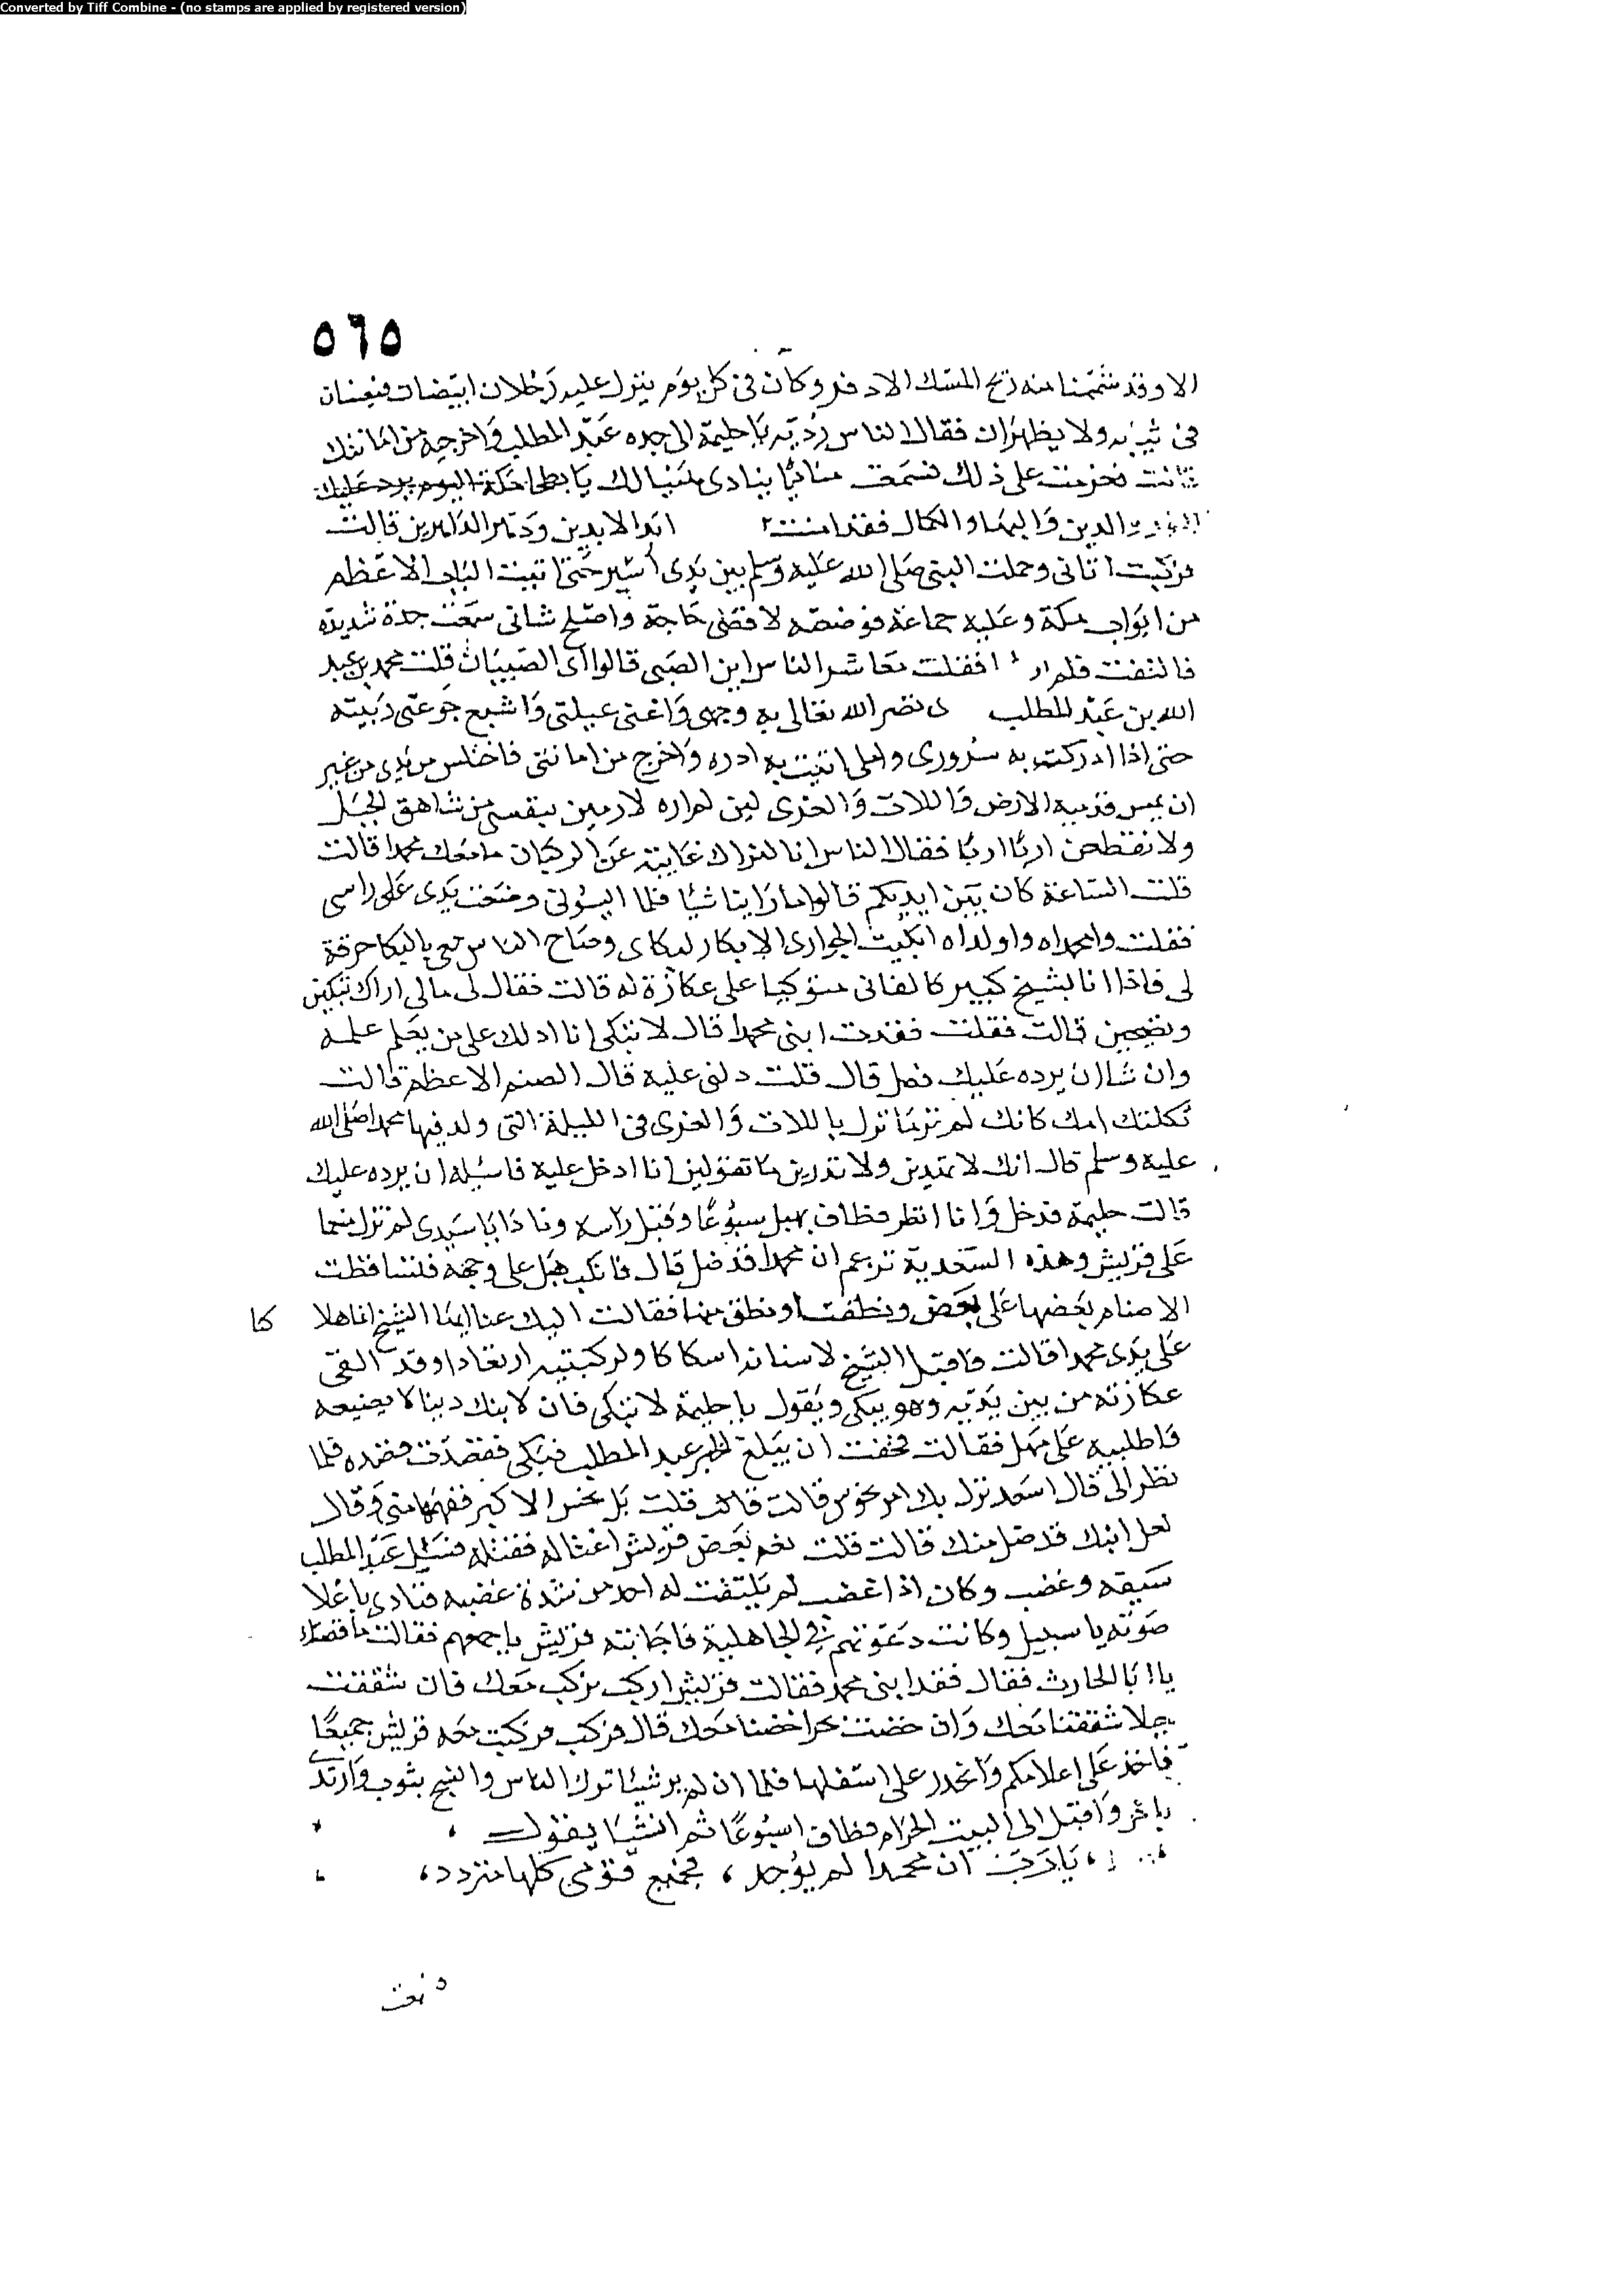 Converted by Tiff Combine - (no stamps are applied by registered version)
٥٦٥
الا وقد شممنا منه ريح المسك الادفر وكان في كل يوم ينزل عليه رجلان ابيضان فيغيبان
في ثيابه ولا يظهران فقال الناس رديه يا حليمة الى جده عبد المطلب واخرجيه من امانتك
قالت فعزمت على ذلك فسمعت مناديا ينادي هنيا لك يا بطحا مكة اليوم يرد عليك
الدين والبها والكمال فقد امنت ابد الابدين ودهر الداهرين قالت
فركبت اتاني وحملت النبي صلى الله عليه وسلم بين يدي أسير حتى اتيت الباب الاعظم
من ابواب مكة وعليه جماعة فوضعته لاقضي حاجة واصلح شاني سمعت هدة شديدة
فالتفت فلم ار فقلت معاشر الناس اين الصبي قالوا اي الصبيان قلت محمد بن عبد
الله بن عبد المطلب نضر الله تعالى به وجهي واغنى عيلتي واشبع جوعتي ربيته
حتى اذا ادركت به سروري واملي اتيت به ارده واخرج من امانتي فاختلس من يدي من غير
ان يمس قدميه الارض واللات والعزى لين لم اره لارمين بنفسي من شاهق الجبل
ولانقطعن اربا اربا فقال الناس انا لنراك غايبة عن الركبان ما معك محمدا قالت
قلت الساعة كان بين ايديكم قالوا ما راينا شيا فلما ايسوني وضعت يدي على راسي
فقلت وامحمداه واولداه ابكيت الجواري الابكار لبكاي وصاح الناس معي بالبكا حرقة
لي فاذا انا بشيخ كبير كالفاني متوكيا على عكازة له قالت فقال لي مالي اراك تبكين
وتضجين قالت فقلت فقدت ابني محمدا قال لا تبكي انا ادلك على من يعلم علمه
وان شا ان يرده عليك فعل قال قلت دلني عليه قال الصنم الاعظم قالت
ثكلتك امك كانك لم تر ما نزل باللات والعزى في الليلة التي ولد فيها محمدا صلى الله
عليه وسلم قال انك لا تهتدين ولا تدرين ما تقولين انا ادخل عليه فاسئله ان يرده عليك
قالت حليمة فدخل وانا انظر فطاف بهبل سبوعا وقبل راسه ونادا يا سيدي لم تزل منعما
على قريش وهذه السعدية تزعم ان محمدا قد ضل قال فانكب هبل على وجهه فتساقطت
الاصنام بعضها على بعض ونطقت او نطق منها فقالت اليك عنا ايها الشيخ انما هلا كنا
على يدي محمدا قالت فاقبل الشيخ لاسنانه اسكاكا ولركبتيه ارتعادا وقد القى
عكازته من بين يديه وهو يبكي ويقول يا حليمة لا تبكي فان لابنك دينا لا يضيعه
فاطلبيه على مهل فقالت فخفت ان يبلغ الخبر عبد المطلب فيبكي فقصدت قصده فلما
نظر الي قال اسعد نزل بك ام نحوس قالت قلت بل نحس الاكبر ففهمها مني وقال
لعل ابنك قد ضل منك قالت قلت نعم بعض قريش اغتاله فقتله فسل عبد المطلب
سيفه وغضب وكان اذا غضب لم يلتفت له احد من شدة غضبه فنادى باعلا
صوته يا سبيل وكانت دعوتهم في الجاهلية فاجابته قريش باجمعهم فقالت ما قصتك
يا ابا الحارث فقال فقد ابني محمد فقالت قريش اركب نركب معك فان شققت
جبلا شققنا معك وان خضت بحرا خضنا معك قال فركب فركبت معه قريش جميعا
فاخذ على اعلامكم وانحدر على اسفلها فلما ان لم ير شيئا ترك الناس واتشح بثوب وارتدى
باخر واقبل الى البيت الحرام فطاف اسبوعا ثم انشيا يقول
يا رب ان محمدا لم يوجد ، فجميع قومي كلها متردد ،